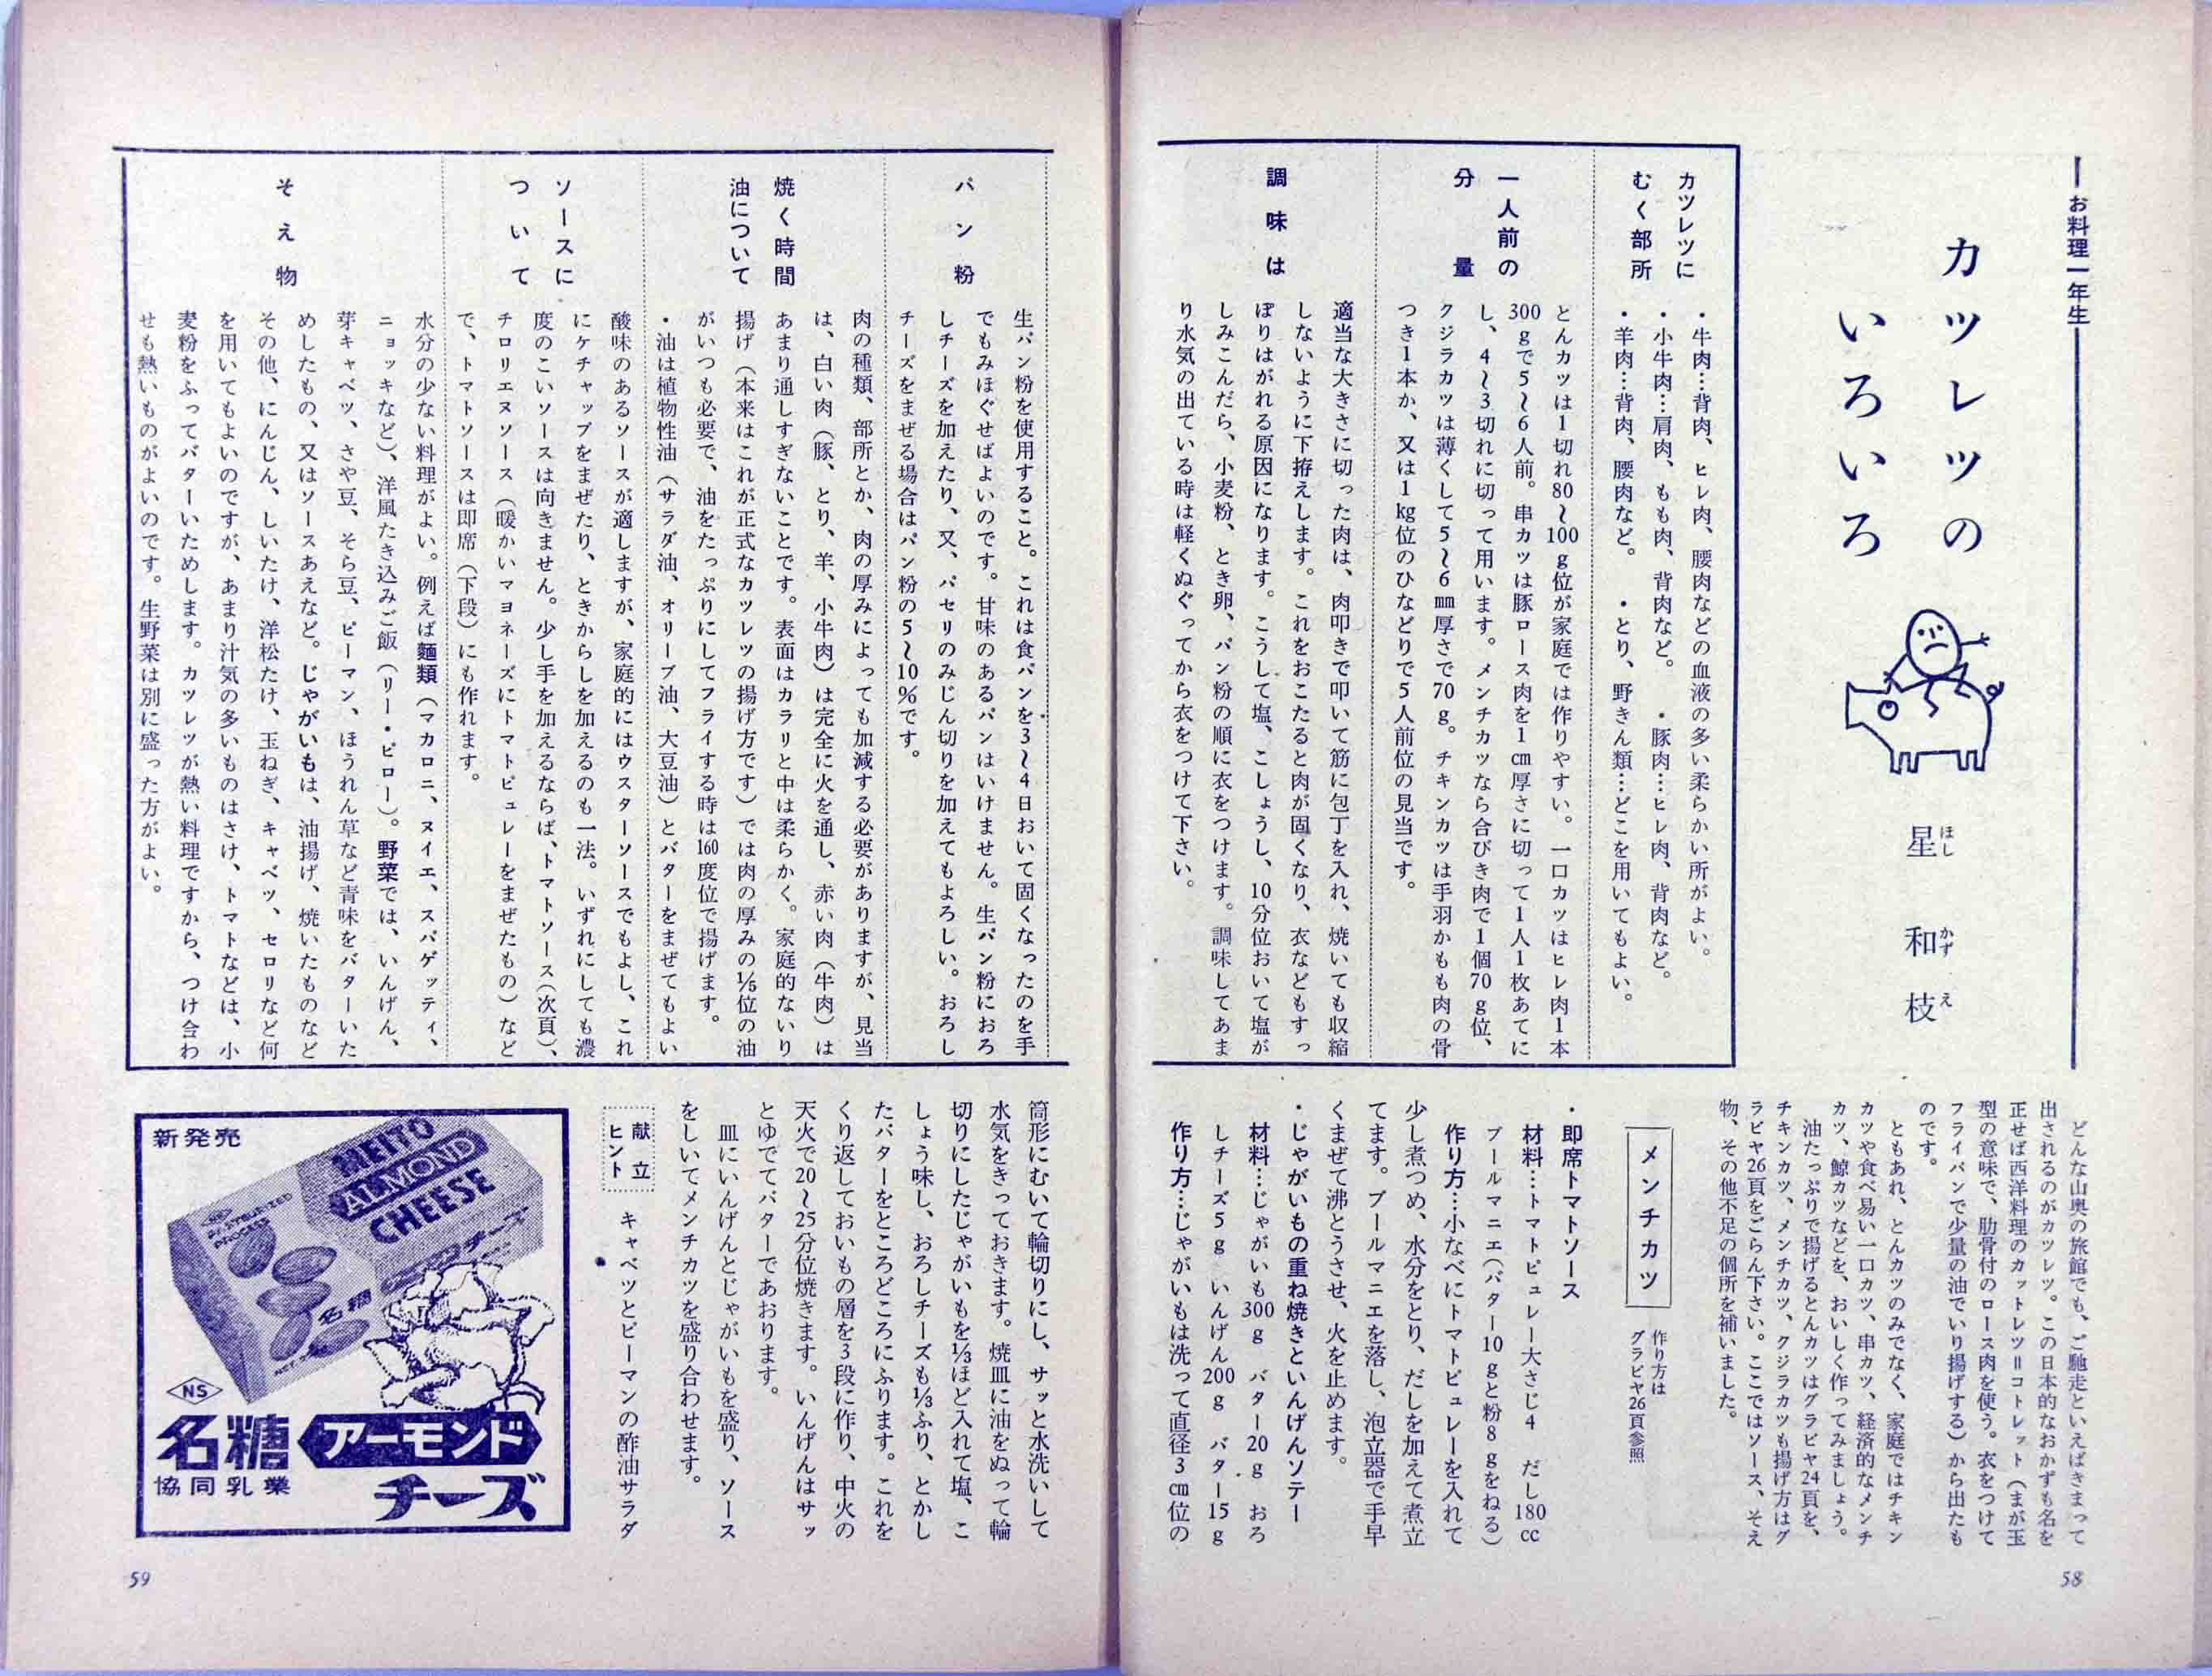 お料理一年生
カツレツの
いろいろ
星 和枝
ほし かず え
カツレツに
むく部所
・牛肉…背肉、ヒレ肉、腰肉などの血液の多い柔らかい所がよい。
・小牛肉…肩肉、もも肉、背肉など。 ・豚肉…ヒレ肉、背肉など。
・羊肉…背肉、腰肉など。 ・とり、野きん類…どこを用いてもよい。
一人前の
分量
とんカツは1切れ80〜100g位が家庭では作りやすい。一口カツはヒレ肉1本
300gで5〜6人前。串カツは豚ロース肉を1cm厚さに切って1人1枚あてに
し、4〜3切れに切って用います。メンチカツなら合びき肉で1個70g位、
クジラカツは薄くして5〜6mm厚さで70g。チキンカツは手羽かもも肉の骨
つき1本か、又は1kg位のひなどりで5人前位の見当です。
調味は
適当な大きさに切った肉は、肉叩きで叩いて筋に包丁を入れ、焼いても収縮
しないように下拵えします。これをおこたると肉が固くなり、衣などもすっ
ぽりはがれる原因になります。こうして塩、こしょうし、10分位おいて塩が
しみこんだら、小麦粉、とき卵、パン粉の順に衣をつけます。調味してあま
り水気の出ている時は軽くぬぐってから衣をつけて下さい。
どんな山奥の旅館でも、ご馳走といえばきまって
出されるのがカツレツ。この日本的なおかずも名を
正せば西洋料理のカットレツ＝コトレット（まが玉
型の意味で、肋骨付のロース肉を使う。衣をつけて
フライパンで少量の油でいり揚げする）から出たも
のです。
ともあれ、とんカツのみでなく、家庭ではチキン
カツや食べ易い一口カツ、串カツ、経済的なメンチ
カツ、鯨カツなどを、おいしく作ってみましょう。
油たっぷりで揚げるとんカツはグラビヤ24頁を、
チキンカツ、メンチカツ、クジラカツも揚げ方はグ
ラビヤ26頁をごらん下さい。ここではソース、そえ
物、その他不足の個所を補いました。
メンチカツ
作り方は
グラビヤ26頁参照
・即席トマトソース
材料…トマトピュレー大さじ4 だし180cc
ブールマニエ（バター10gと粉8gをねる）
作り方…小なべにトマトピュレーを入れて
少し煮つめ、水分をとり、だしを加えて煮立
てます。ブールマニエを落し、泡立器で手早
くまぜて沸とうさせ、火を止めます。
・じゃがいもの重ね焼きといんげんソテー
材料…じゃがいも300g バター20g おろ
しチーズ5g いんげん200g バター15g
作り方…じゃがいもは洗って直径3cm位の
58
パン粉
生パン粉を使用すること。これは食パンを3〜4日おいて固くなったのを手
でもみほぐせばよいのです。甘味のあるパンはいけません。生パン粉におろ
しチーズを加えたり、又、パセリのみじん切りを加えてもよろしい。おろし
チーズをまぜる場合はパン粉の5〜10%です。
焼く時間
油について
肉の種類、部所とか、肉の厚みによっても加減する必要がありますが、見当
は、白い肉（豚、とり、羊、小牛肉）は完全に火を通し、赤い肉（牛肉）は
あまり通しすぎないことです。表面はカラリと中は柔らかく。家庭的ないり
揚げ（本来はこれが正式なカツレツの揚げ方です）では肉の厚みの1/5位の油
がいつも必要で、油をたっぷりにしてフライする時は160度位で揚げます。
・油は植物性油（サラダ油、オリーブ油、大豆油）とバターをまぜてもよい
ソースに
ついて
酸味のあるソースが適しますが、家庭的にはウスターソースでもよし、これ
にケチャップをまぜたり、ときからしを加えるのも一法。いずれにしても濃
度のこいソースは向きません。少し手を加えるならば、トマトソース（次頁）、
チロリエヌソース（暖かいマヨネーズにトマトピュレーをまぜたもの）など
で、トマトソースは即席（下段）にも作れます。
そえ物
水分の少ない料理がよい。例えば麺類（マカロニ、ヌイエ、スパゲッティ、
ニョッキなど）、洋風たき込みご飯（リー・ピロー）。野菜では、いんげん、
芽キャベツ、さや豆、そら豆、ピーマン、ほうれん草など青味をバターいた
めしたもの、又はソースあえなど。じゃがいもは、油揚げ、焼いたものなど
その他、にんじん、しいたけ、洋松たけ、玉ねぎ、キャベツ、セロリなど何
を用いてもよいのですが、あまり汁気の多いものはさけ、トマトなどは、小
麦粉をふってバターいためします。カツレツが熱い料理ですから、つけ合わ
せも熱いものがよいのです。生野菜は別に盛った方がよい。
筒形にむいて輪切りにし、サッと水洗いして
水気をきっておきます。焼皿に油をぬって輪
切りにしたじゃがいもを1/3ほど入れて塩、こ
しょう味し、おろしチーズも1/3ふり、とかし
たバターをところどころにふります。これを
くり返しておいもの層を3段に作り、中火の
天火で20〜25分位焼きます。いんげんはサッ
とゆでてバターであおります。
皿にいんげんとじゃがいもを盛り、ソース
をしいてメンチカツを盛り合わせます。
献立
ヒント
キャベツとピーマンの酢油サラダ
新発売
MEITO
ALMOND
CHEESE
PASTEURIZED
PROCESS
名糖
アーモンドチーズ
NS
名糖
アーモンド
チーズ
協同乳業
59